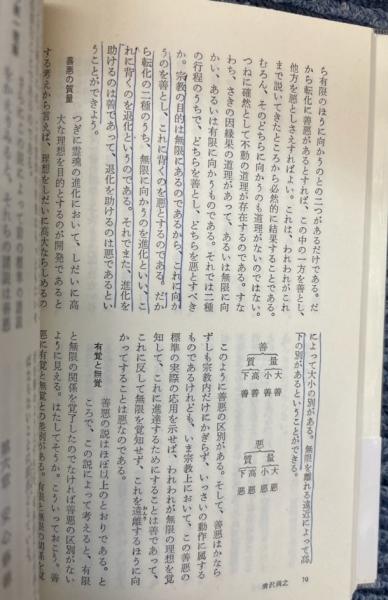 ら有限のほうに向かうのとの二つがあるだけである。だ
から転化に善悪があるとすれば、この中の一方を善とし、
他方を悪としさえすればよい。これは、われわれがこれ
まで説いてきたところから必然的に結果することである。
むろん、そのどちらに向かうのも道理がないのではない。
つねに確然として不動の道理が存在するのである。すな
わち、さきの因縁果の道理があって、あるいは無限に向
かい、あるいは有限に向かうものである。それでは二種
の行程のうちで、どちらを善とし、どちらを悪とすべき
か。宗教の目的は無限にあるのであるから、これに向か
うのを善とし、これに背くのを悪とするのである。だか
ら転化の二種のうち、無限に向かうのを進化といい、こ
れに背くのを退化というのである。それでまた、進化を
助けるのは善であって、退化を助けるのは悪であるとい
うことができよう。
善悪の質量
つぎに霊魂の進化において、しだいに高
大な理想を目的とするのが開発であると
する考えから言えば、理想をしだいに高大ならしめるの
によって大小の別がある。無限を離れる遠近によって高
下の別があるということができる。
善
質 量
下善 高善 小善 大善
悪
質 量
下悪 高悪 小悪 大悪
このように善悪の区別がある。そして、善悪はかなら
ずしも宗教内だけにかぎらず、いっさいの動作に属する
ものであるけれども、いま宗教上において、この善悪の
標準の実際の応用を示せば、われわれが無限の理想を覚
知して、これに進達するためにすることは善であって、
これに反して無限を覚知せず、これを遠離するほうに向
おんり
かってすることは悪なのである。
有覚と無覚
善悪の説はほぼ以上のとおりである。と
ころで、この説によって考えると、有限
と無限の関係を覚了したのでなければ善悪の区別がない
ように見える。はたしてそうか。こういっておこう。善
悪に有覚と無覚との差別がある。有限と無限の関係を覚
清沢満之
79